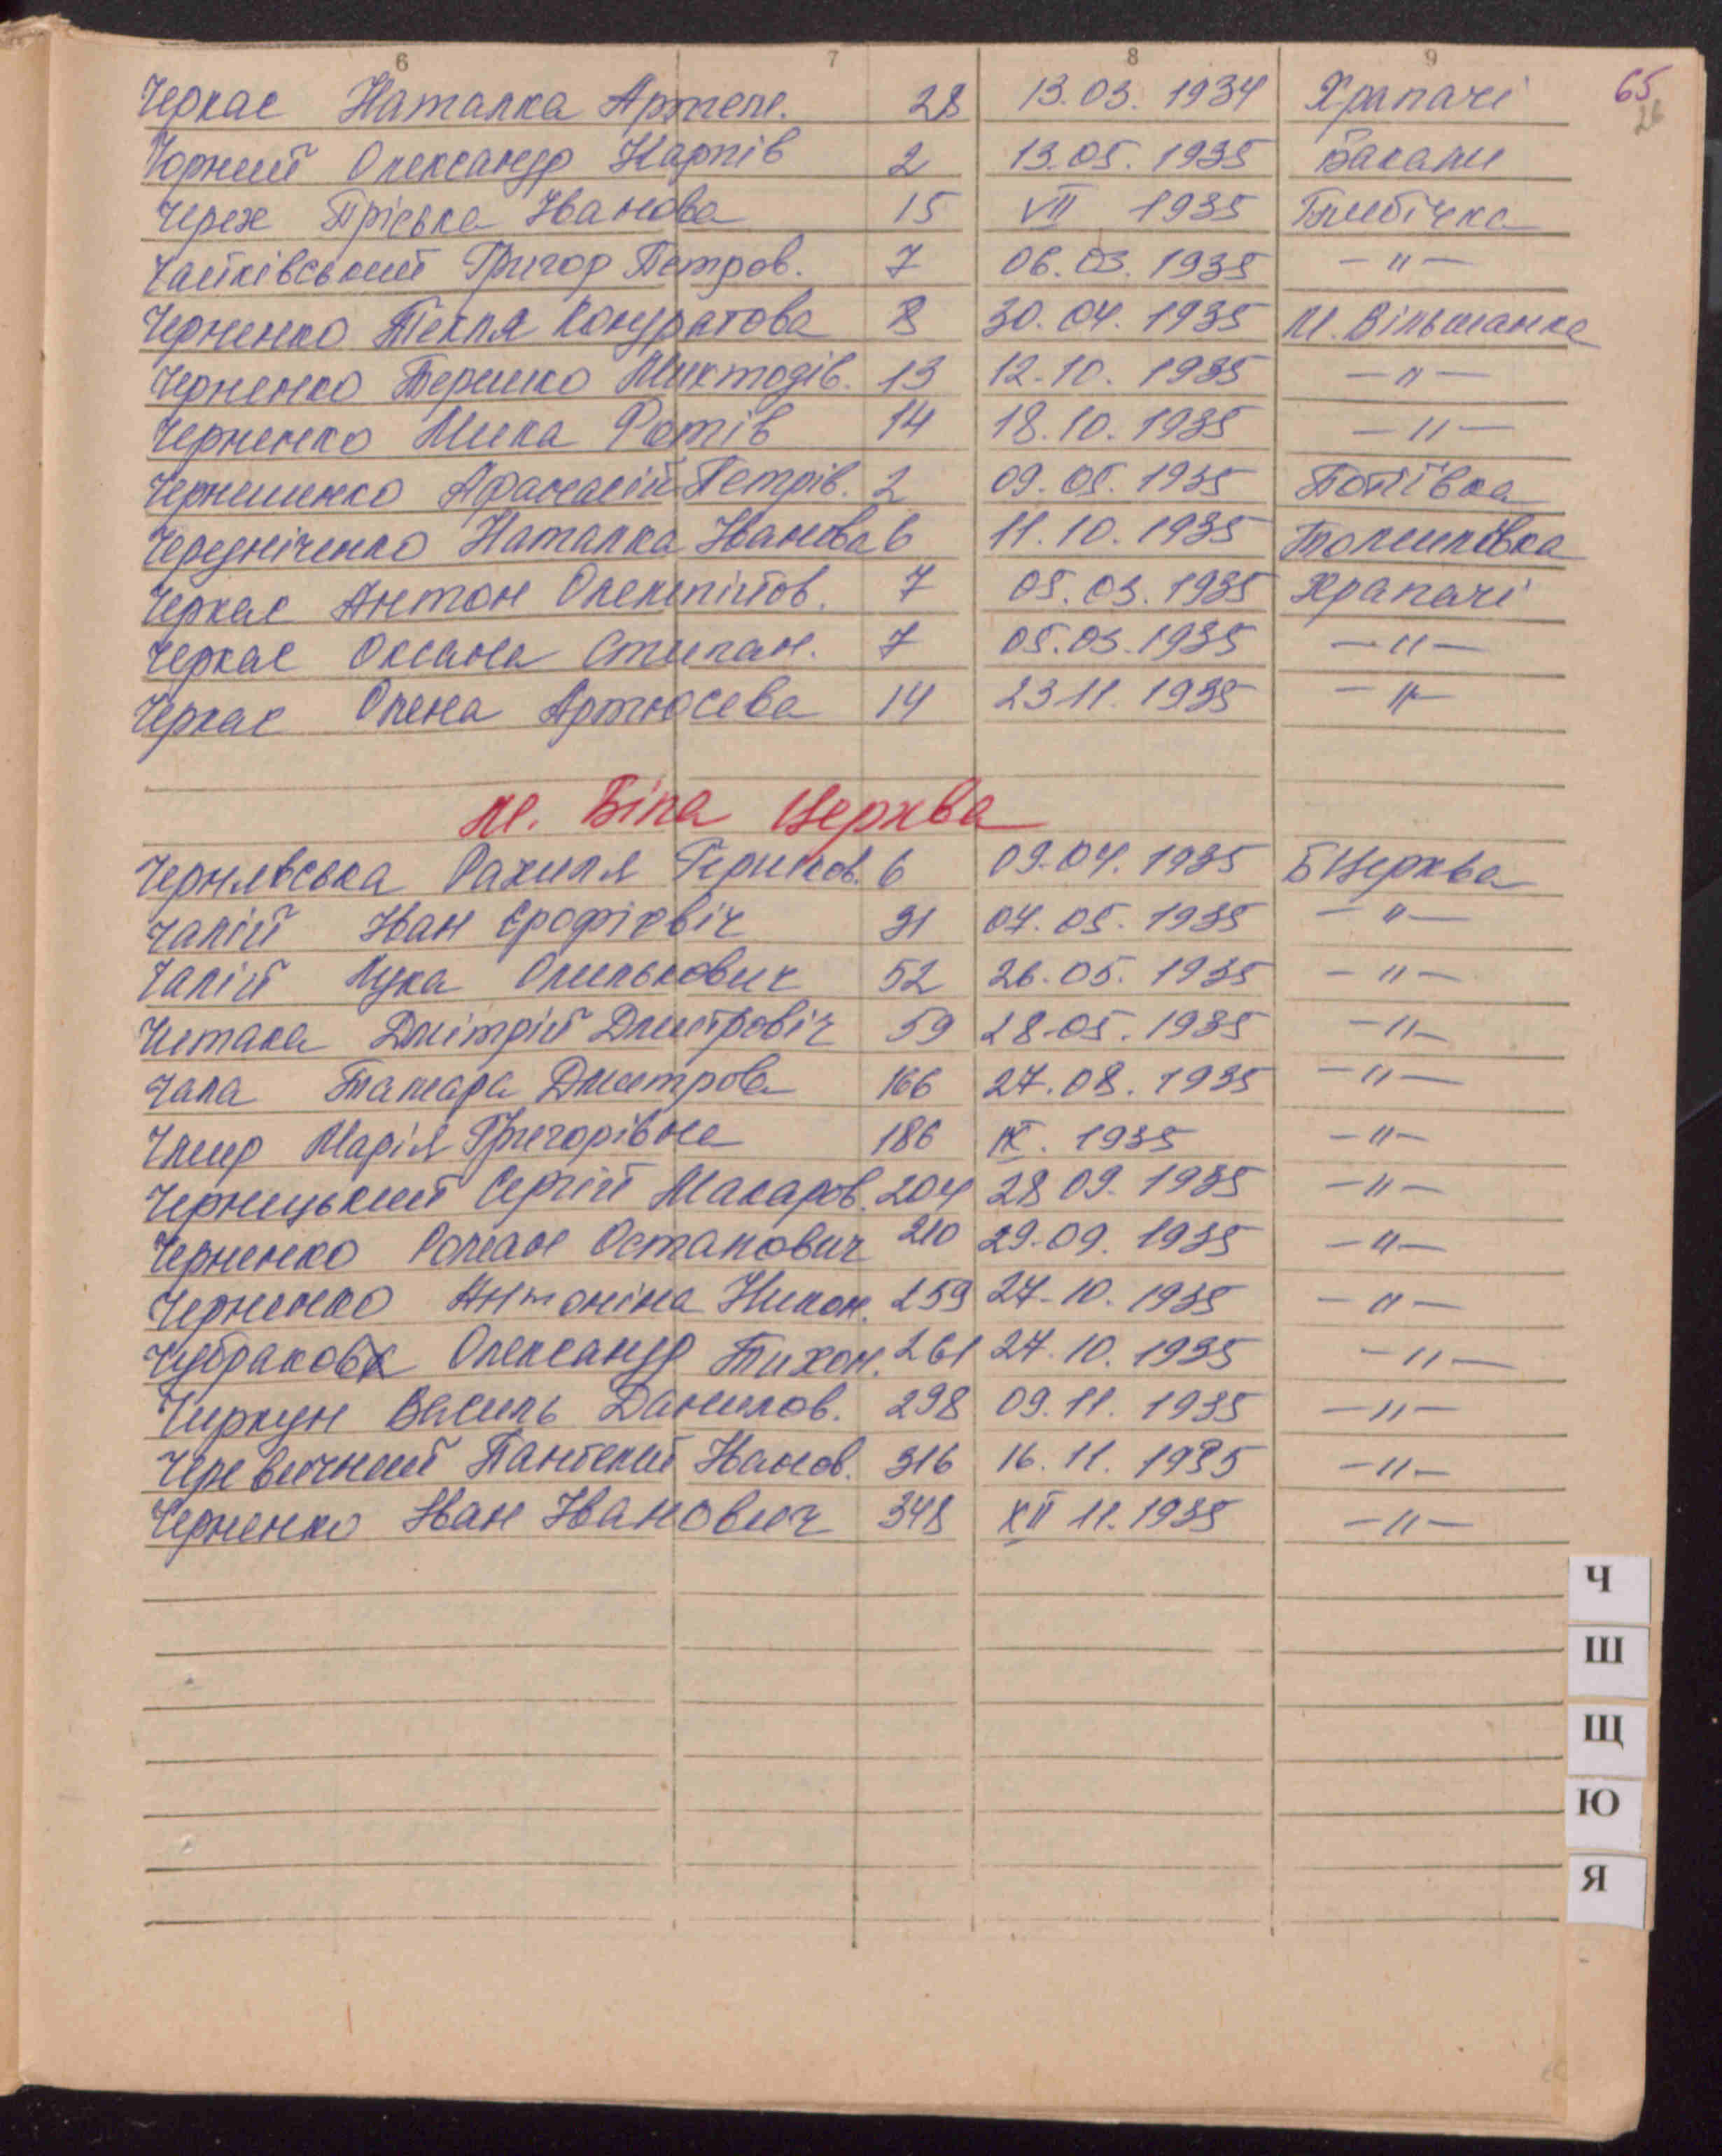 6 7 8 9
65
26
Черкас Наталка Артем. 28 13.03.1934 Храпачі
Чорний Олександр Карпів 2 13.05.1935 Бакали
Череж Пріська Іванова 15 VII 1935 Глибічка
Чайківський Григор Петров. 7 06.03.1935 -"-
Черненко Текля Кондратова 8 30.04.1935 М. Вільшанка
Черненко Терешко 13 12.10.1935 -"-
Черненко Мика Фотів 14 18.10.1935 -"-
Чернишенко Афанасій Петрів. 2 09.05.1935 Потіївка
Чередніченко Наталка Іванова 6 11.10.1935 Томилівка
Черкас Антон 7 05.03.1935 Храпачі
Черкас Оксана Степан. 7 05.03.1935 -"-
Черкас Олена Артюсева 14 23 11.1935 -"-
м. Біла Церква
Чернявська Рахиля Гершков. 6 09.04.1935 Б Церква
Чалій Іван Єрофієвіч 31 04.05.1935 -"-
Чалій Лука Омелькович 52 26.05.1935 -"-
Читака Дмітрій Дмитровіч 59 28.05.1935 -"-
Чала Тамара Дмитрова 166 27.08.1935 -"-
Чмир Марія Григорівна 186 IX. 1935 -"-
Черницький Сергій Макаров. 204 28 09.1935 -"-
Черненко Роман Остапович 210 29.09.1935 -"-
Черненко Антоніна Никон. 259 27.10.1935 -"-
Олександр Тихон. 261 27.10.1935 -"-
Чиркун Василь Данилов. 298 09.11.1935 -"-
Черевичний Пантелій Іванов. 316 16.11.1935 -"-
Черненко Іван Іванович 348 XII 11.1935 -"-
Ч
Ш
Щ
Ю
Я